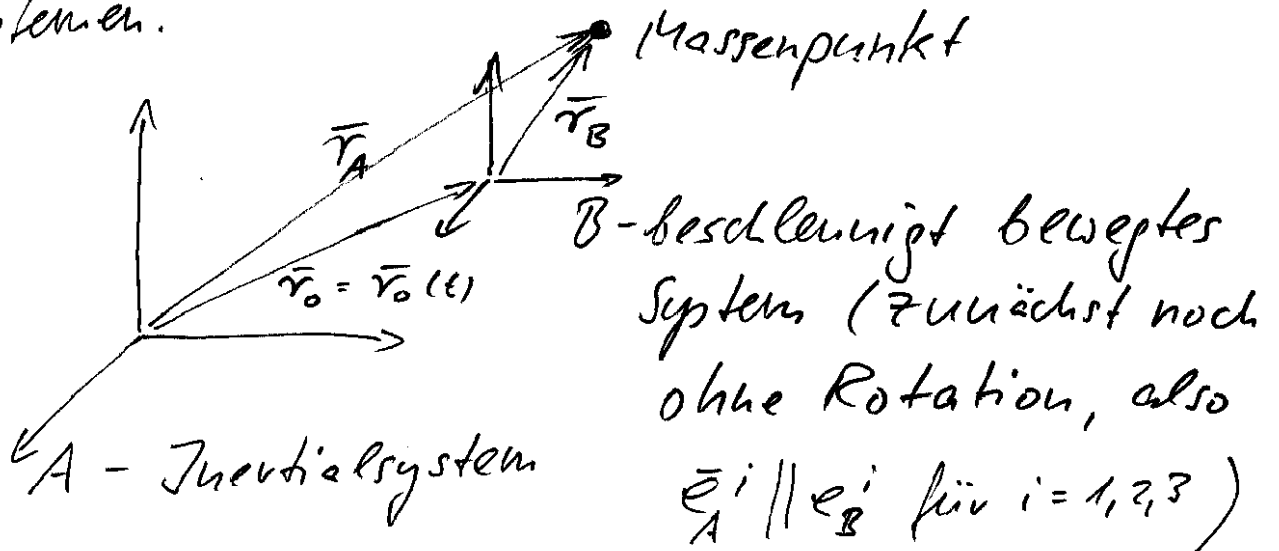 stemen.
Massenpunkt
r̄_A
r̄_B
r̄_0 = r̄_0 (t)
B-beschleunigt bewegtes
System (zunächst noch
ohne Rotation, also
ē_A^i || e_B^i für i = 1, 2, 3)
A - Inertialsystem